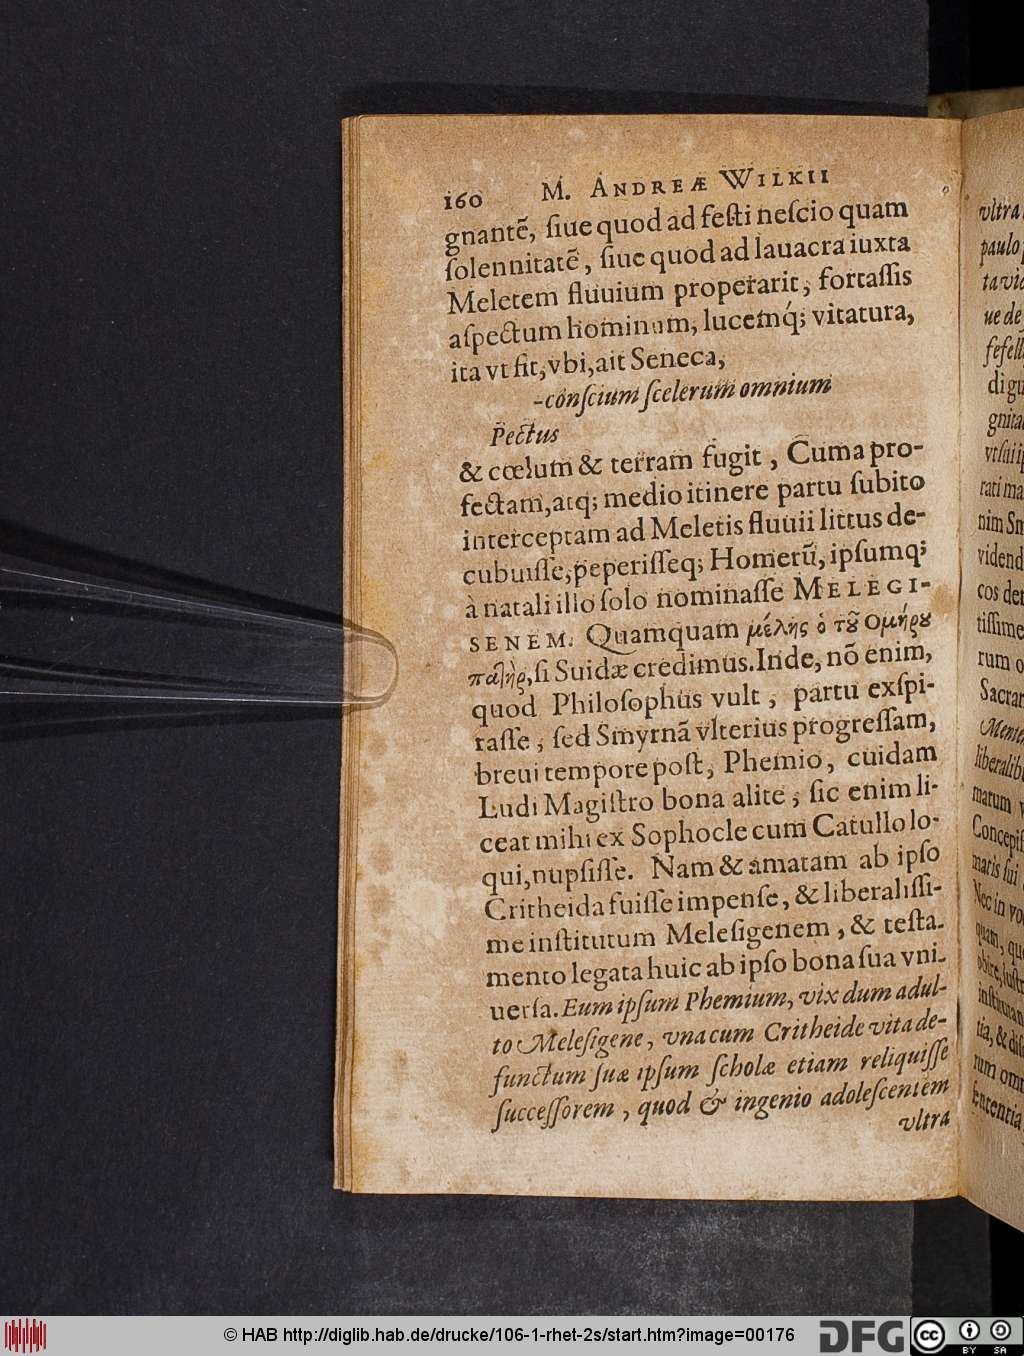 160 M. ANDREÆ WILKII
gnantẽ, ſiue quod ad feſti neſcio quam
ſolennitatẽ, ſiue quod ad lauacra iuxta
Meletem fluuium properarit, fortaſſis
aſpectum hominum, lucemq́; vitatura,
ita vt fit, vbi, ait Seneca,
-conſcium ſcelerum omnium
Pectus
& cœlum & terram fugit, Cuma pro-
fectam, atq; medio itinere partu ſubito
interceptam ad Meletis fluuii littus de-
cubuiſſe, peperiſſeq; Homerũ, ipſumq;
à natali illo ſolo nominaſſe MELEGI-
SENEM. Quamquam μέλης ὁ τȣ̃ Ομήρȣ
πατὴρ, ſi Suidæ credimus. Inde, nõ enim,
quod Philoſophus vult, partu exſpi-
raſſe, ſed Smyrnã vlterius progreſſam,
breui tempore poſt, Phemio, cuidam
Ludi Magiſtro bona alite, ſic enim li-
ceat mihi ex Sophocle cum Catullo lo-
qui, nupſiſſe. Nam & amatam ab ipſo
Critheida fuiſſe impenſe, & liberaliſſi-
me inſtitutum Meleſigenem, & teſta-
mento legata huic ab ipſo bona ſua vni-
uerſa. Eum ipſum Phemium, vix dum adul-
to Meleſigene, vna cum Critheide vita de-
functum ſuæ ipſum ſcholæ etiam reliquiſſe
ſucceſſorem, quod & ingenio adoleſcentem
vltra
vltra
paulo
ta
ue de
di
nim
cos
rum o
liberalib
marum
matis ſui
Nec in
quam,
tia, &
rum
ſententia
© HAB http://diglib.hab.de/drucke/106-1-rhet-2s/start.htm?image=00176
DFG
cc
BY SA